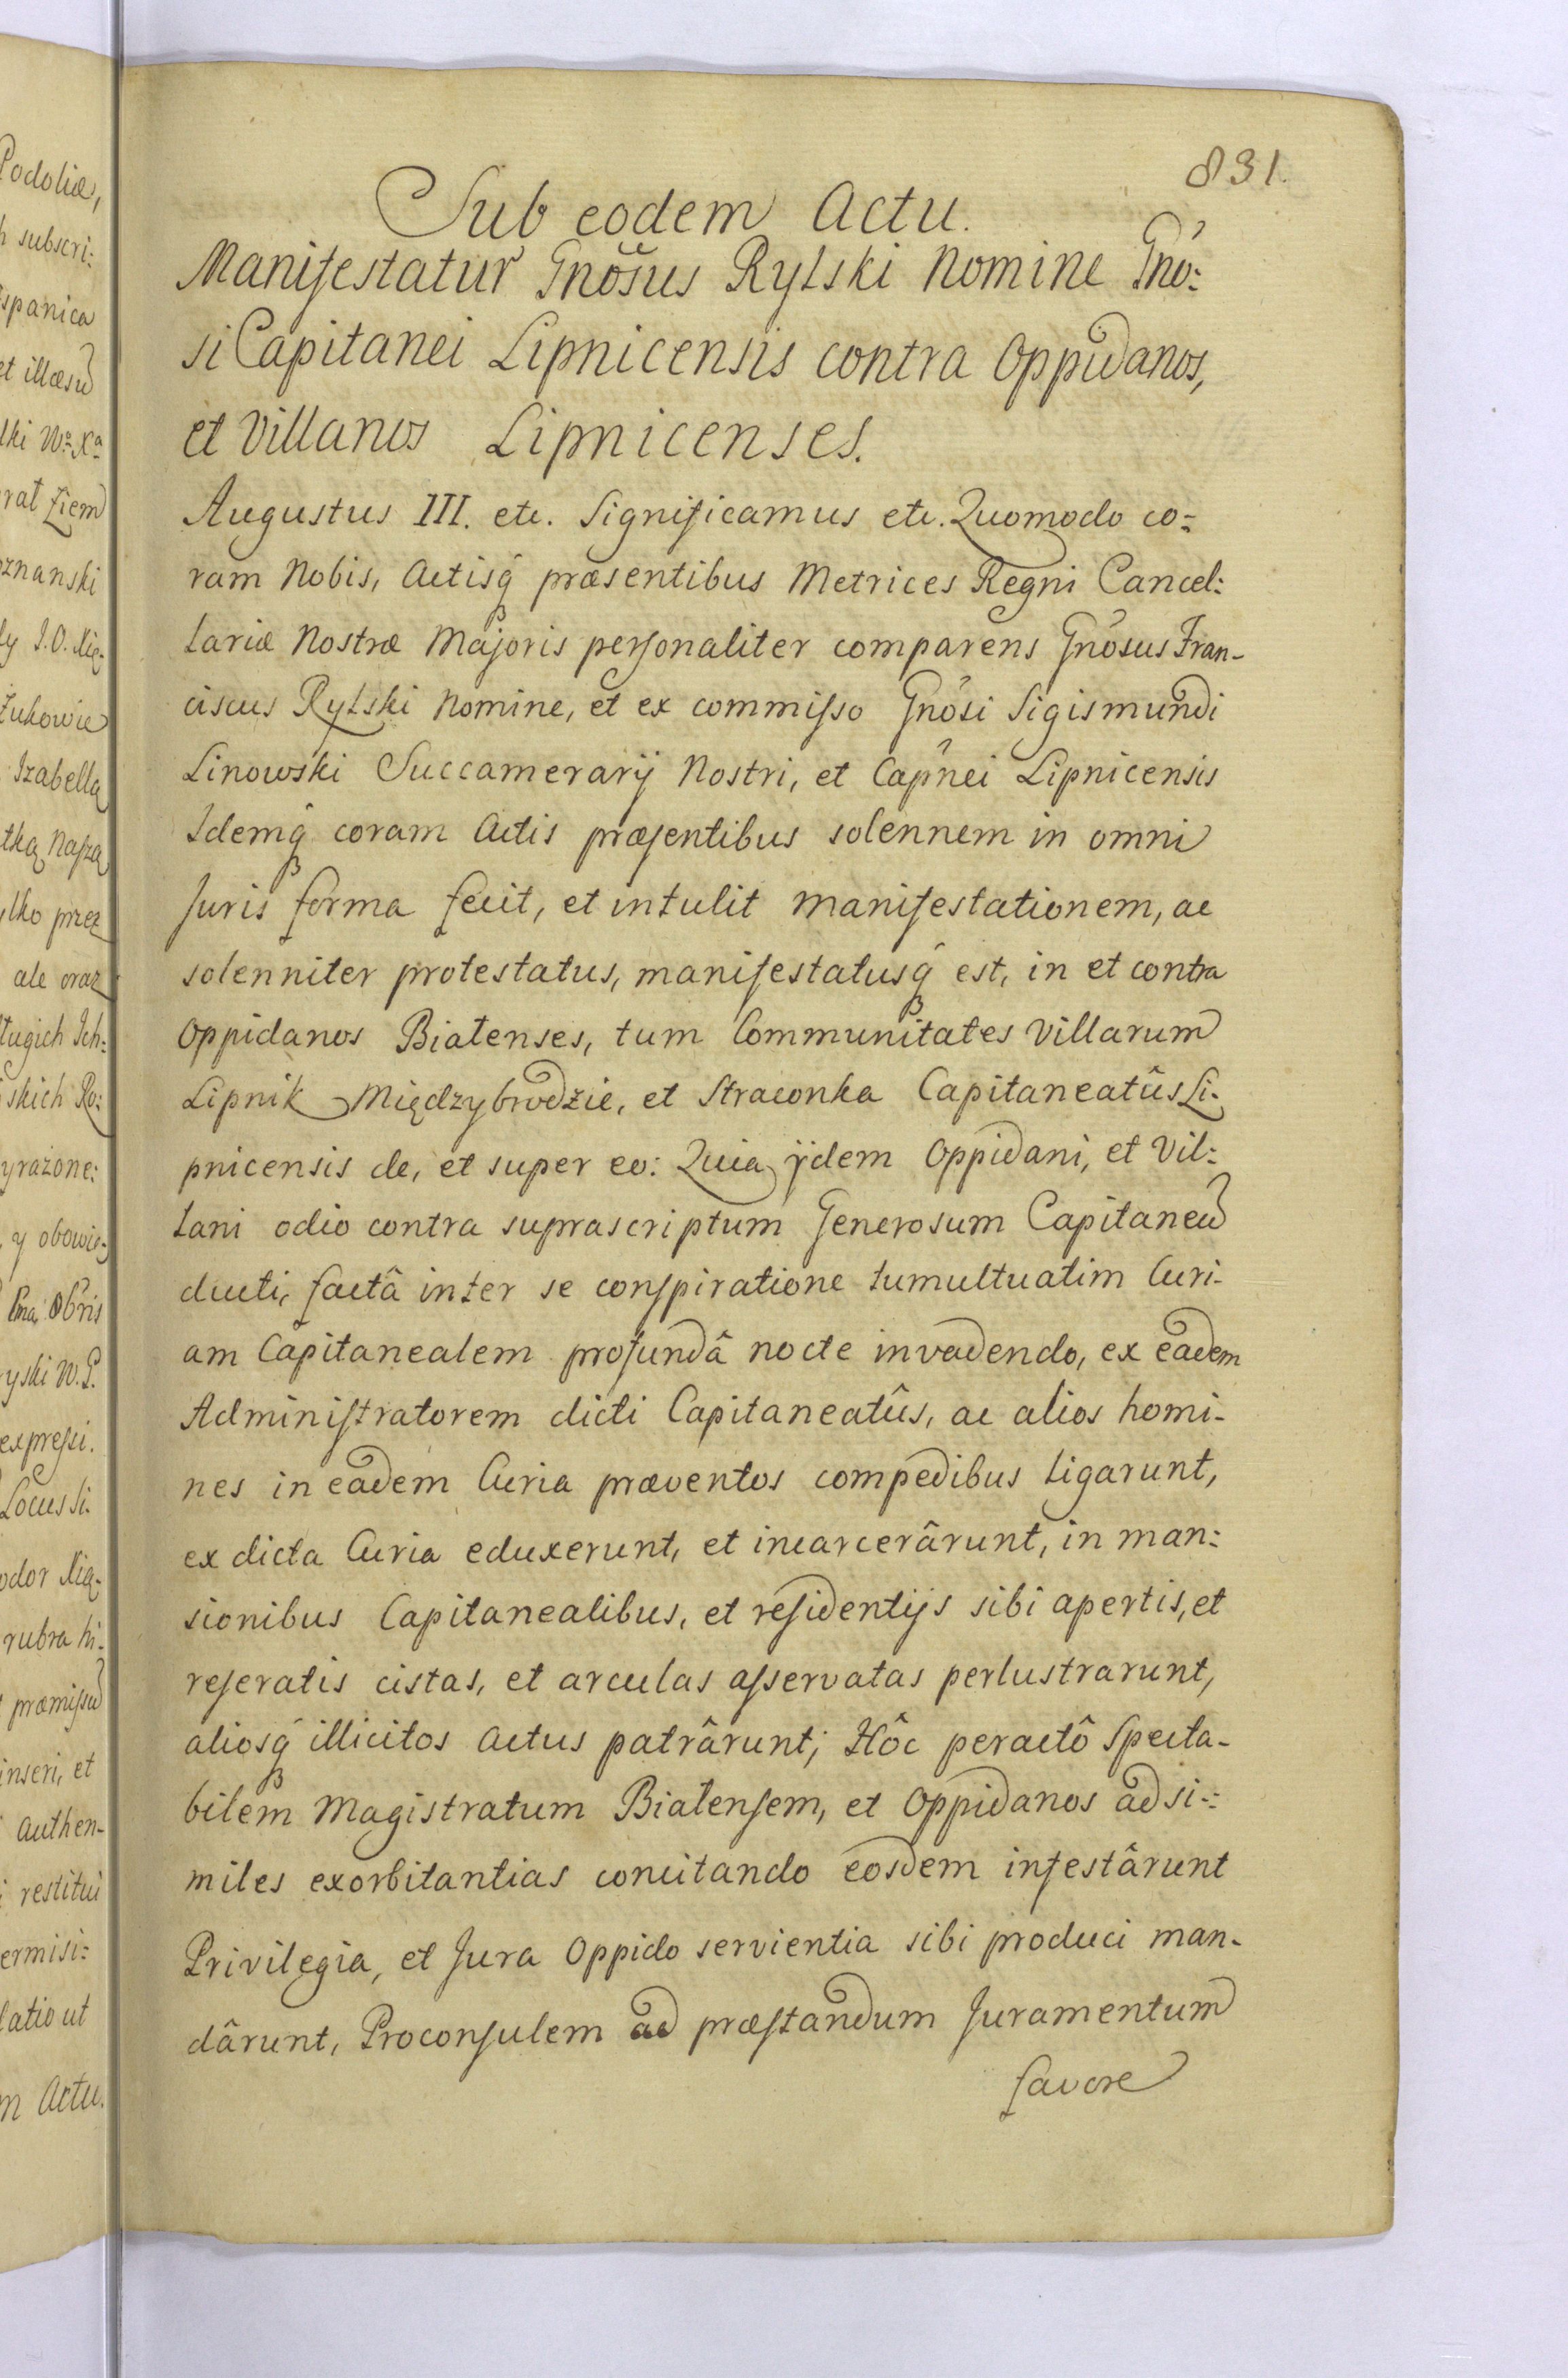 831.
Sub eodem Actu.
Manifestatur Gnosus Rylski Nomine Gno:
si Capitanei Lipnicensis contra Oppidanos,
et Villanos Lipnicenses.
Augustus III. etc. Significamus etc. Quomodo co:
ram Nobis, Actisq́ præsentibus Metrices Regni Cancel:
lariæ Nostræ Majoris personaliter comparens Gnosus Fran-
ciscus Rylski Nomine, et ex commisso Gnosi Sigismundi
Linowski Succamerarij Nostri, et Capnei Lipnicensis
Idemq́ coram Actis præsentibus solennem in omni
Juris forma fecit, et intulit manifestationem, ac
solenniter protestatus, manifestatusq́ est, in et contra
Oppidanos Białenses, tum Communitates Villarum
Lipnik Międzybrodzie, et Straconka Capitaneatûs Li:
pnicensis de, et super eo: Quia ijdem Oppidani, et Vil:
lani odio contra suprascriptum Generosum Capitaneũ
ducti, factâ inter se conspiratione tumultuatim Curi-
am Capitanealem profundâ nocte invadendo, ex eadem
Administratorem dicti Capitaneatûs, ac alios homi-
nes in eadem Curia præventos compedibus ligarunt,
ex dicta Curia eduxerunt, et incarcerârunt, in man:
sionibus Capitanealibus, et residentijs sibi apertis, et
reseratis cistas, et arculas asservatas perlustrarunt,
aliosq́ illicitos actus patrârunt; Hôc peractô Specta-
bilem Magistratum Białensem, et Oppidanos ad si-:
miles exorbitantias concitando eosdem infestârunt
Privilegia, et Jura Oppido servientia sibi produci man-
dârunt, Proconsulem ad præstandum Juramentum
favore
Podoliæ,
subscri:
et illæsũ
Izabella
ale oraz
y obowię-
expressi.
Locus Si.
rubra
præmissũ
inseri, et
Authen-
restitui
ermisi:
latio ut
m Actu.